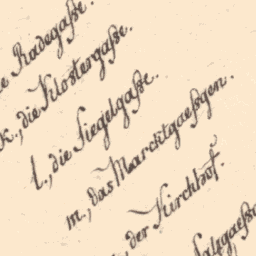 Radegaße.
k., die Klostergaße.
l., die Siegelgaße.
m., das Marcktgaeßgen.
der Kirchhof.